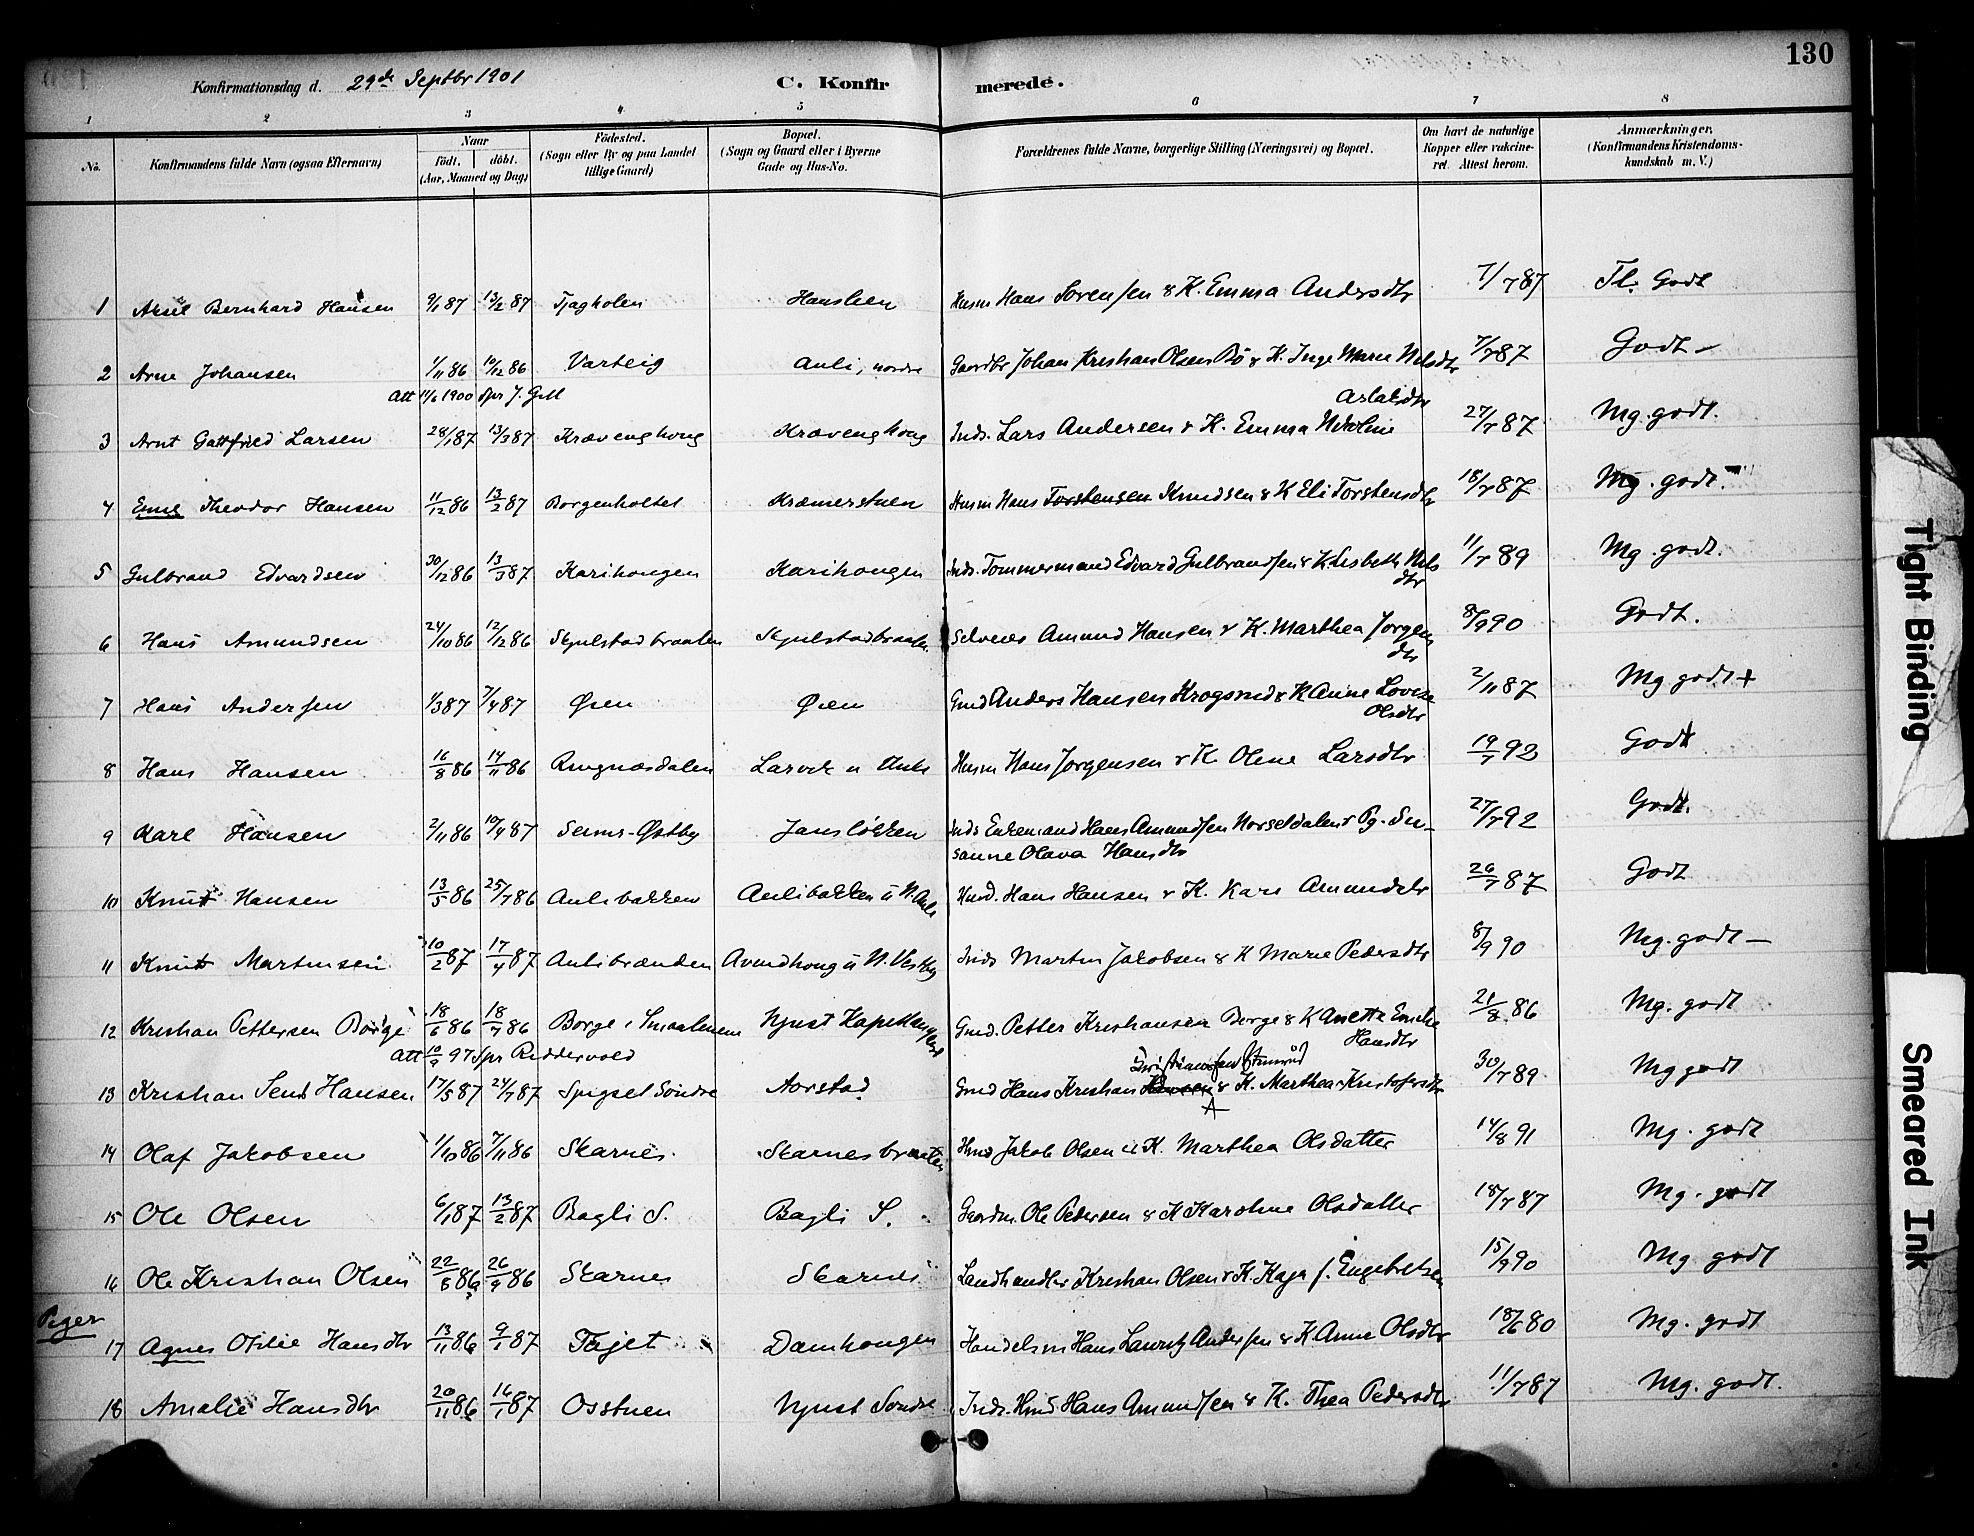 130
Konfirmationsdag d. 29de Septbr 1901 C. Konfirmerede.
1 2 3 4 5 6 7 8
No. Konfirmandens fulde Navn (ogsaa Efternavn) Naar født. døbt. (Aar, Maaned og Dag) Fødested. (Sogn eller By og paa Landet tillige Gaard) Bopæl. (Sogn og Gaard eller i Byerne Gade og Hus-No. Forældrenes fulde Navne, borgerlige Stilling (Næringsvei) og Bopæl. Om havt de naturlige Kopper eller vakcineret. Attest herom. Anmærkninger. (Konfirmandens Kristendomskundskab m. V.)
1 Aksel Bernhard Hansen 9/1 87 13/2 87 Tjagholen Hansleen Husm Hans Sørensen & K. Emma Andersdtr 7/7 87 Tl. Godt
2 Arne Johansen 1/11 86 10/12 86 Varteig Auli, nordre Gaardbr Johan Kristian Olsen Bø & K. Inge Marie Nilsdtr 7/7 87 Godt -
Att 11/6 1900 Spr J. Gill
Aslaksdtr
3 Arnt Gottfried Larsen 28/1 87 13/3 87 Krævenghoug Krævenghoug Inds. Lars Andersen & K. Emma Nikoline 27/7 87 Mg. godt.
4 Emil Theodor Hansen 11/12 86 13/2 87 Borgenholtet Kræmerstuen Husm Hans Torstensen Knudsen & K Eli Torstensdtr 18/7 87 Mg. godt.
5 Gulbrand Edvardsen 30/12 86 13/3 87 Karihougen Karihougen Inds. Tømmermand Edvard Gulbrandsen & K Lisbeth Nils 11/7 89 Mg. godt.
dtr
6 Hans Amundsen 24/10 86 12/12 86 Skjulstadbraaten Skjulstadbraaten Selveier Amund Hansen & K. Marthea Jørgens 8/9 90 Godt.
dtr
7 Hans Andersen 1/3 87 7/4 87 Øien Øien Gmd Anders Hansen Krogsrud & K Anne Lovise 2/11 87 Mg godt +
Olsdtr
8 Hans Hansen 16/8 86 14/11 86 Ringnæsdalen Larvik u Auli Husm Hans Jørgensen & K. Oline Larsdtr 19/7 92 Godt
9 Karl Hansen 2/11 86 10/4 87 Seims-Østby Jansløkken Inds Enkemand Hans Amundsen Horseldalen & Pg. Su- 27/7 92 Godt.
sanne Olava Hansdtr
10 Knut Hansen 13/5 86 25/7 86 Aulibakken Aulibakken u N. Auli Hmd. Hans Hansen & K. Kari Amundsdtr 26/7 87 Godt
11 Knut Martinsen 10/2 87 17/4 87 Aulibrænden Avindhoug u N. Vestby Inds Martin Jakobsen & K Marie Pedersdtr 8/9 90 Mg. godt -
12 Kristian Pettersen Borge 18/6 86 18/7 86 Borge i Smaalenene Njust Gmd. Petter Kristiansen Borge & K Anette Emilie 21/8 86 Mg. godt
Hansdtr
Att 10/9 97 Spr Riddervold
13 Kristian Hansen 17/5 87 24/7 87 Spigset Søndre Aarstad Gmd Hans Kristian Hansen & K. Marthea Kristofersdtr 30/7 89 Mg godt
14 Olaf Jakobsen 1/10 86 7/11 86 Skarnes Skarnesbraaten Hmd Jakob Olsen & K. Marthea Olsdatter 14/8 91 Mg. godt
15 Ole Olsen 6/1 87 13/2 87 Bagli S. Bagli S. Gaardm. Ole Pedersen & K Karoline Olsdatter 18/7 87 Mg. godt
16 Ole Kristian Olsen 22/8 86 26/9 86 Skarnes Skarnes Landhandler Kristian Olsen & K. Kaja f. Engebretsen 15/9 90 Mg godt
Piger
17 Agnes Otilie Hansdtr 13/11 86 9/1 87 Tajet Damhougen Handelsm Hans Lauritz Andersen & K Anne Olsdtr 18/6 80 Mg. godt
18 Amalie Hansdtr 20/11 86 16/1 87 Osstuen Njust Søndre Inds. Hmd Hans Amundsen & K. Thea Pedersdtr 11/7 87 Mg. godt.
Tight Binding
Smeared Ink